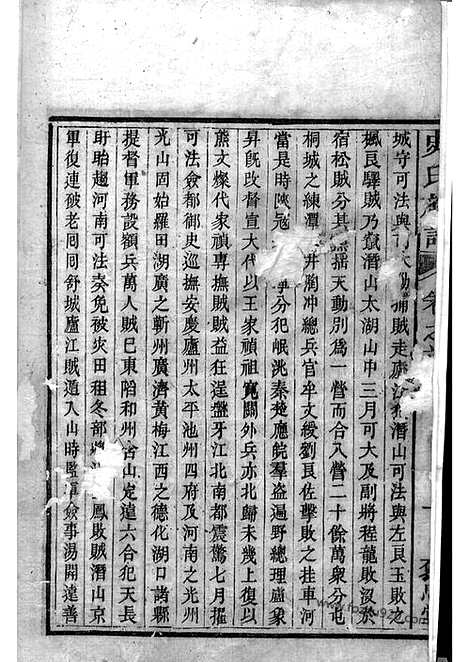 史氏
城守可法與賊走潛山可法與左良玉敗之
楓良驛賊乃竄潛山太湖山中三月可大及副將程龍敗沒於
宿松賊分其搖天動別為一營而合八營二十餘萬眾分屯
桐城之練潭井澗冲總兵官牟文綬劉良佐擊敗之挂車河
當是時陝寇分犯岷洮秦楚應皖羣盜遍野總理盧象
昇既改督宣大代以王家禎祖寬關外兵亦北歸未幾上復以
熊文燦代家禎專撫賊賊益狂逞盤牙江北南都震驚七月擢
可法僉都御史巡撫安慶廬州太平池州四府及河南之光州
光山固始羅田湖廣之蘄州廣濟黃梅江西之德化湖口諸縣
提督軍務設額兵萬人賊巳東陷和州含山定遠六合犯天長
盱眙趨河南可法奏免被災田租冬部鳳敗賊潛山京
軍復連破老囘囘舒城廬江賊遁入山時監軍僉事湯開遠善